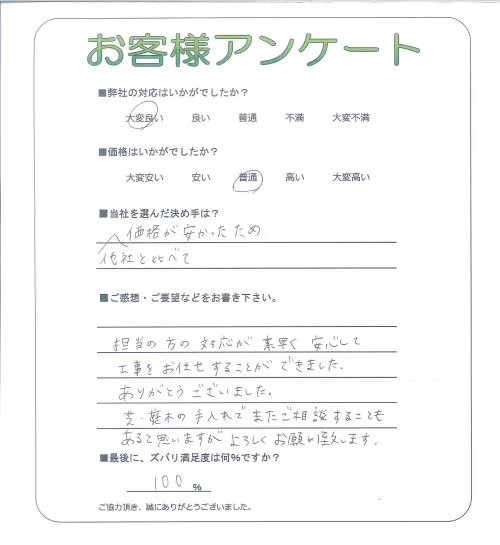 お客様アンケート
■弊社の対応はいかがでしたか?
大変良い 良い 普通 不満 大変不満
■価格はいかがでしたか?
大変安い 安い 普通 高い 大変高い
■当社を選んだ決め手は?
価格が安かったため
他社と比べて
■ご感想・ご要望などをお書き下さい。
担当の方の対応が素早く安心して
工事をお任せすることができました。
ありがとうございました。
芝・庭木の手入れでまたご相談することも
あると思いますがよろしくお願い致します。
■最後に、ズバリ満足度は何%ですか?
100 %
ご協力頂き、誠にありがとうございました。